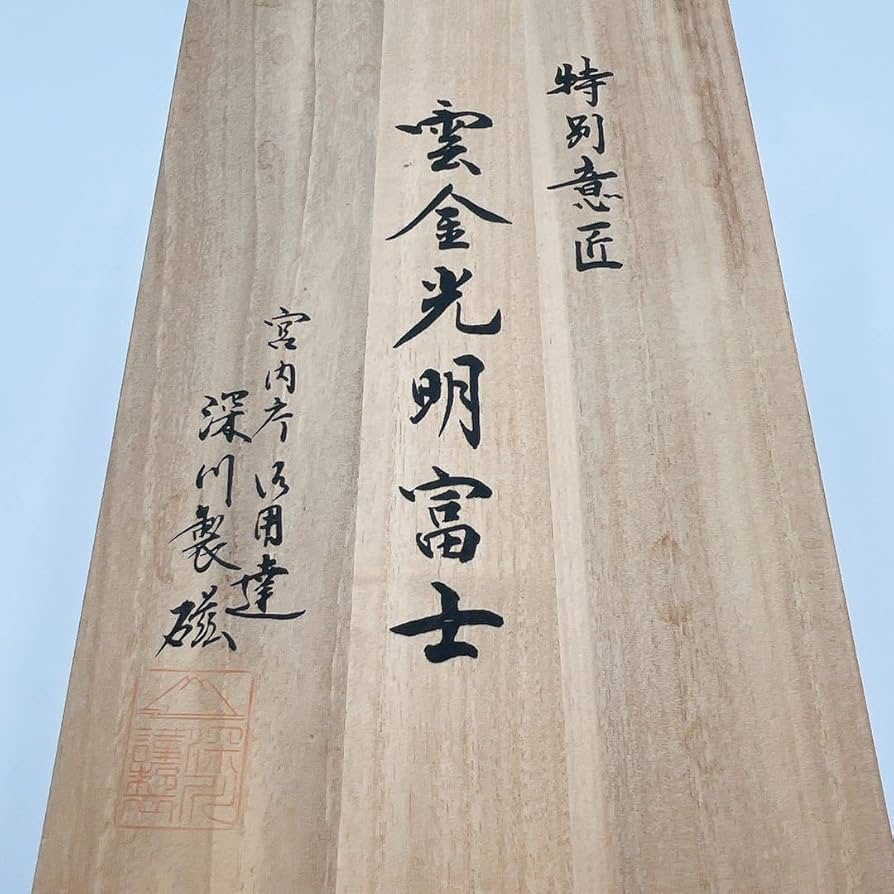 特別意匠
雲金光明富士
宮内庁御用達
深川製磁
深川
謹製